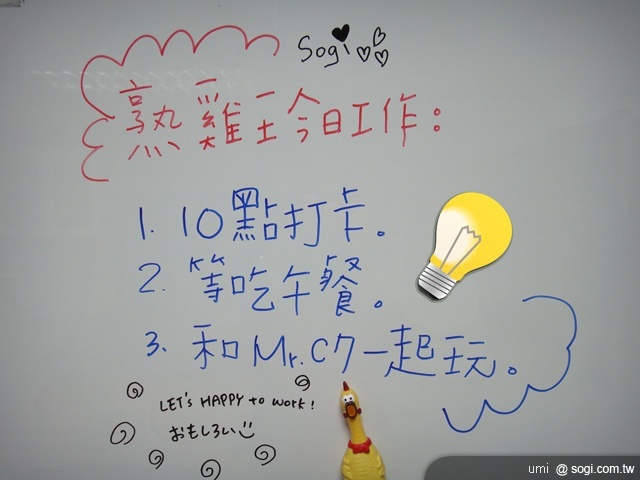 Sogi
熟雞王今日工作：
1. 10點打卡。
2. 等吃午餐。
3. 和Mr.C7一起玩。
LET's HAPPY to work!
おもしろい
umi @sogi.com.tw